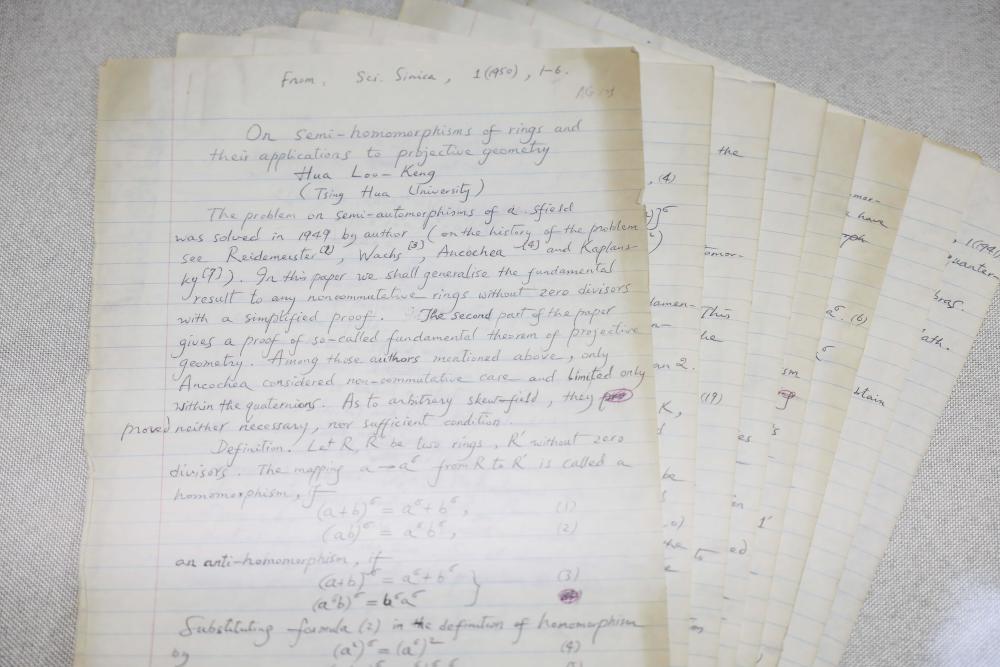 From. Sci. Sinica, 1(1950), 1-6.
On semi-homomorphisms of rings and
their applications to projective geometry
Hua Loo-Keng
(Tsing Hua University)
The problem on semi-automorphisms of a sfield
was solved in 1949 by author (on the history of the problem
see Reidemeister[2], Wachs[3], Ancochea[4] and Kaplans-
ky[7]). In this paper we shall generalise the fundamental
result to any noncommutative rings without zero divisors
with a simplified proof. The second part of the paper
gives a proof of so-called fundamental theorem of projective
geometry. Among those authors mentioned above, only
Ancochea considered non-commutative case and limited only
within the quaternions. As to arbitrary skew-field, they
proved neither necessary, nor sufficient condition.
Definition. Let R, R' be two rings, R' without zero
divisors. The mapping a→aσ from R to R' is called a
homomorphism, if
(a+b)σ = aσ+bσ, (1)
(ab)σ = aσbσ, (2)
an anti-homomorphism, if
(a+b)σ = aσ+bσ } (3)
(aσb)σ = bσaσ
Substituting formula (2) in the definition of homomorphism
by (a²)σ = (aσ)² (4)
, (4)
the
omor-
damen-
This
he
an 2.
K,
(19)
be
es
's
sm
1'
ed
mor-
have
aσ. (6)
σ
btain
, 1(194
quater-
bras.
ath.